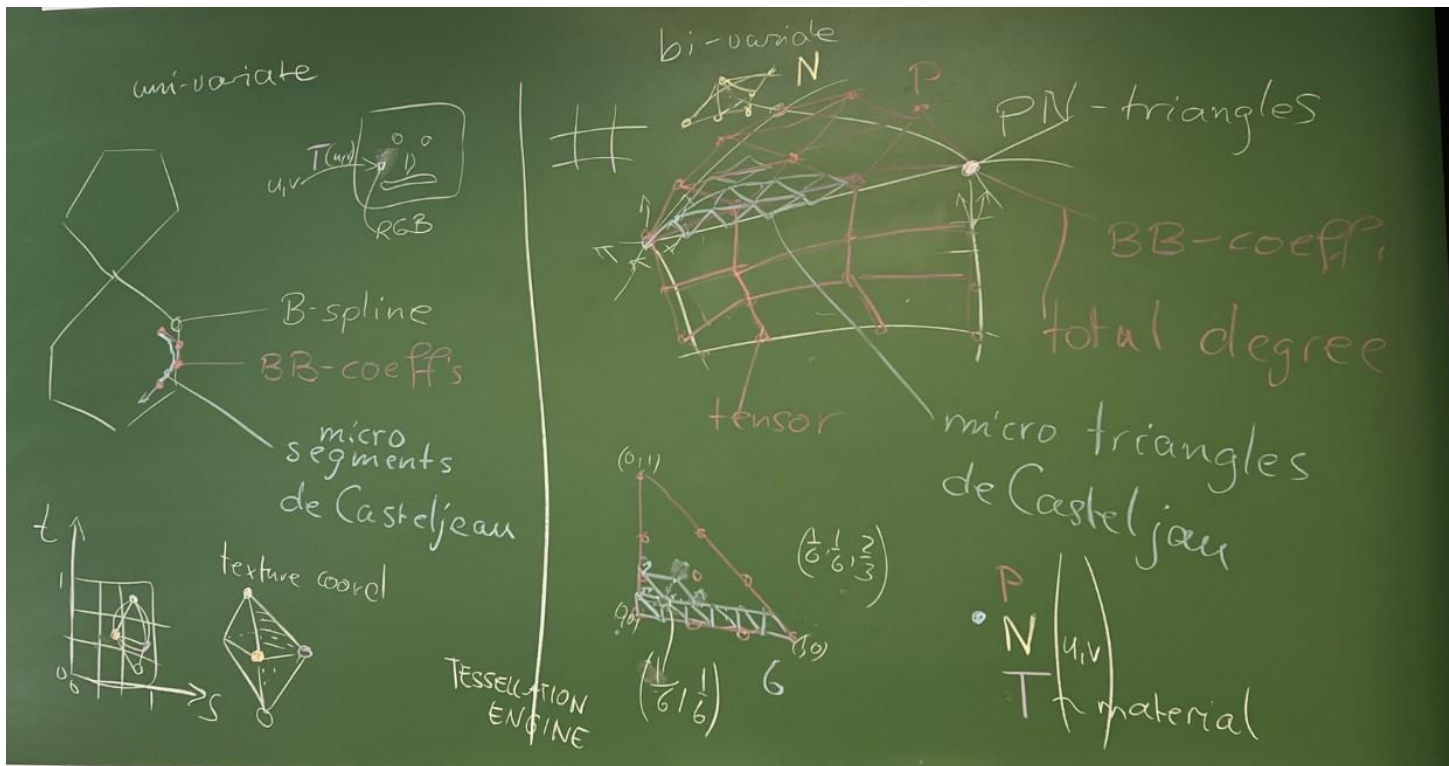 uni-variate
T(u,v)
u,v
RGB
B-spline
BB-coeff's
micro
segments
de Casteljeau
t
1
0
0
1
s
texture coord
TESSELLATION
ENGINE
bi-variate
N
P
PN-triangles
BB-coeff.
total degree
tensor
micro triangles
de Casteljau
(0,1)
(1/6, 1/6, 2/3)
(1,0)
(1/6, 1/6)
6
P
N (u,v)
T material